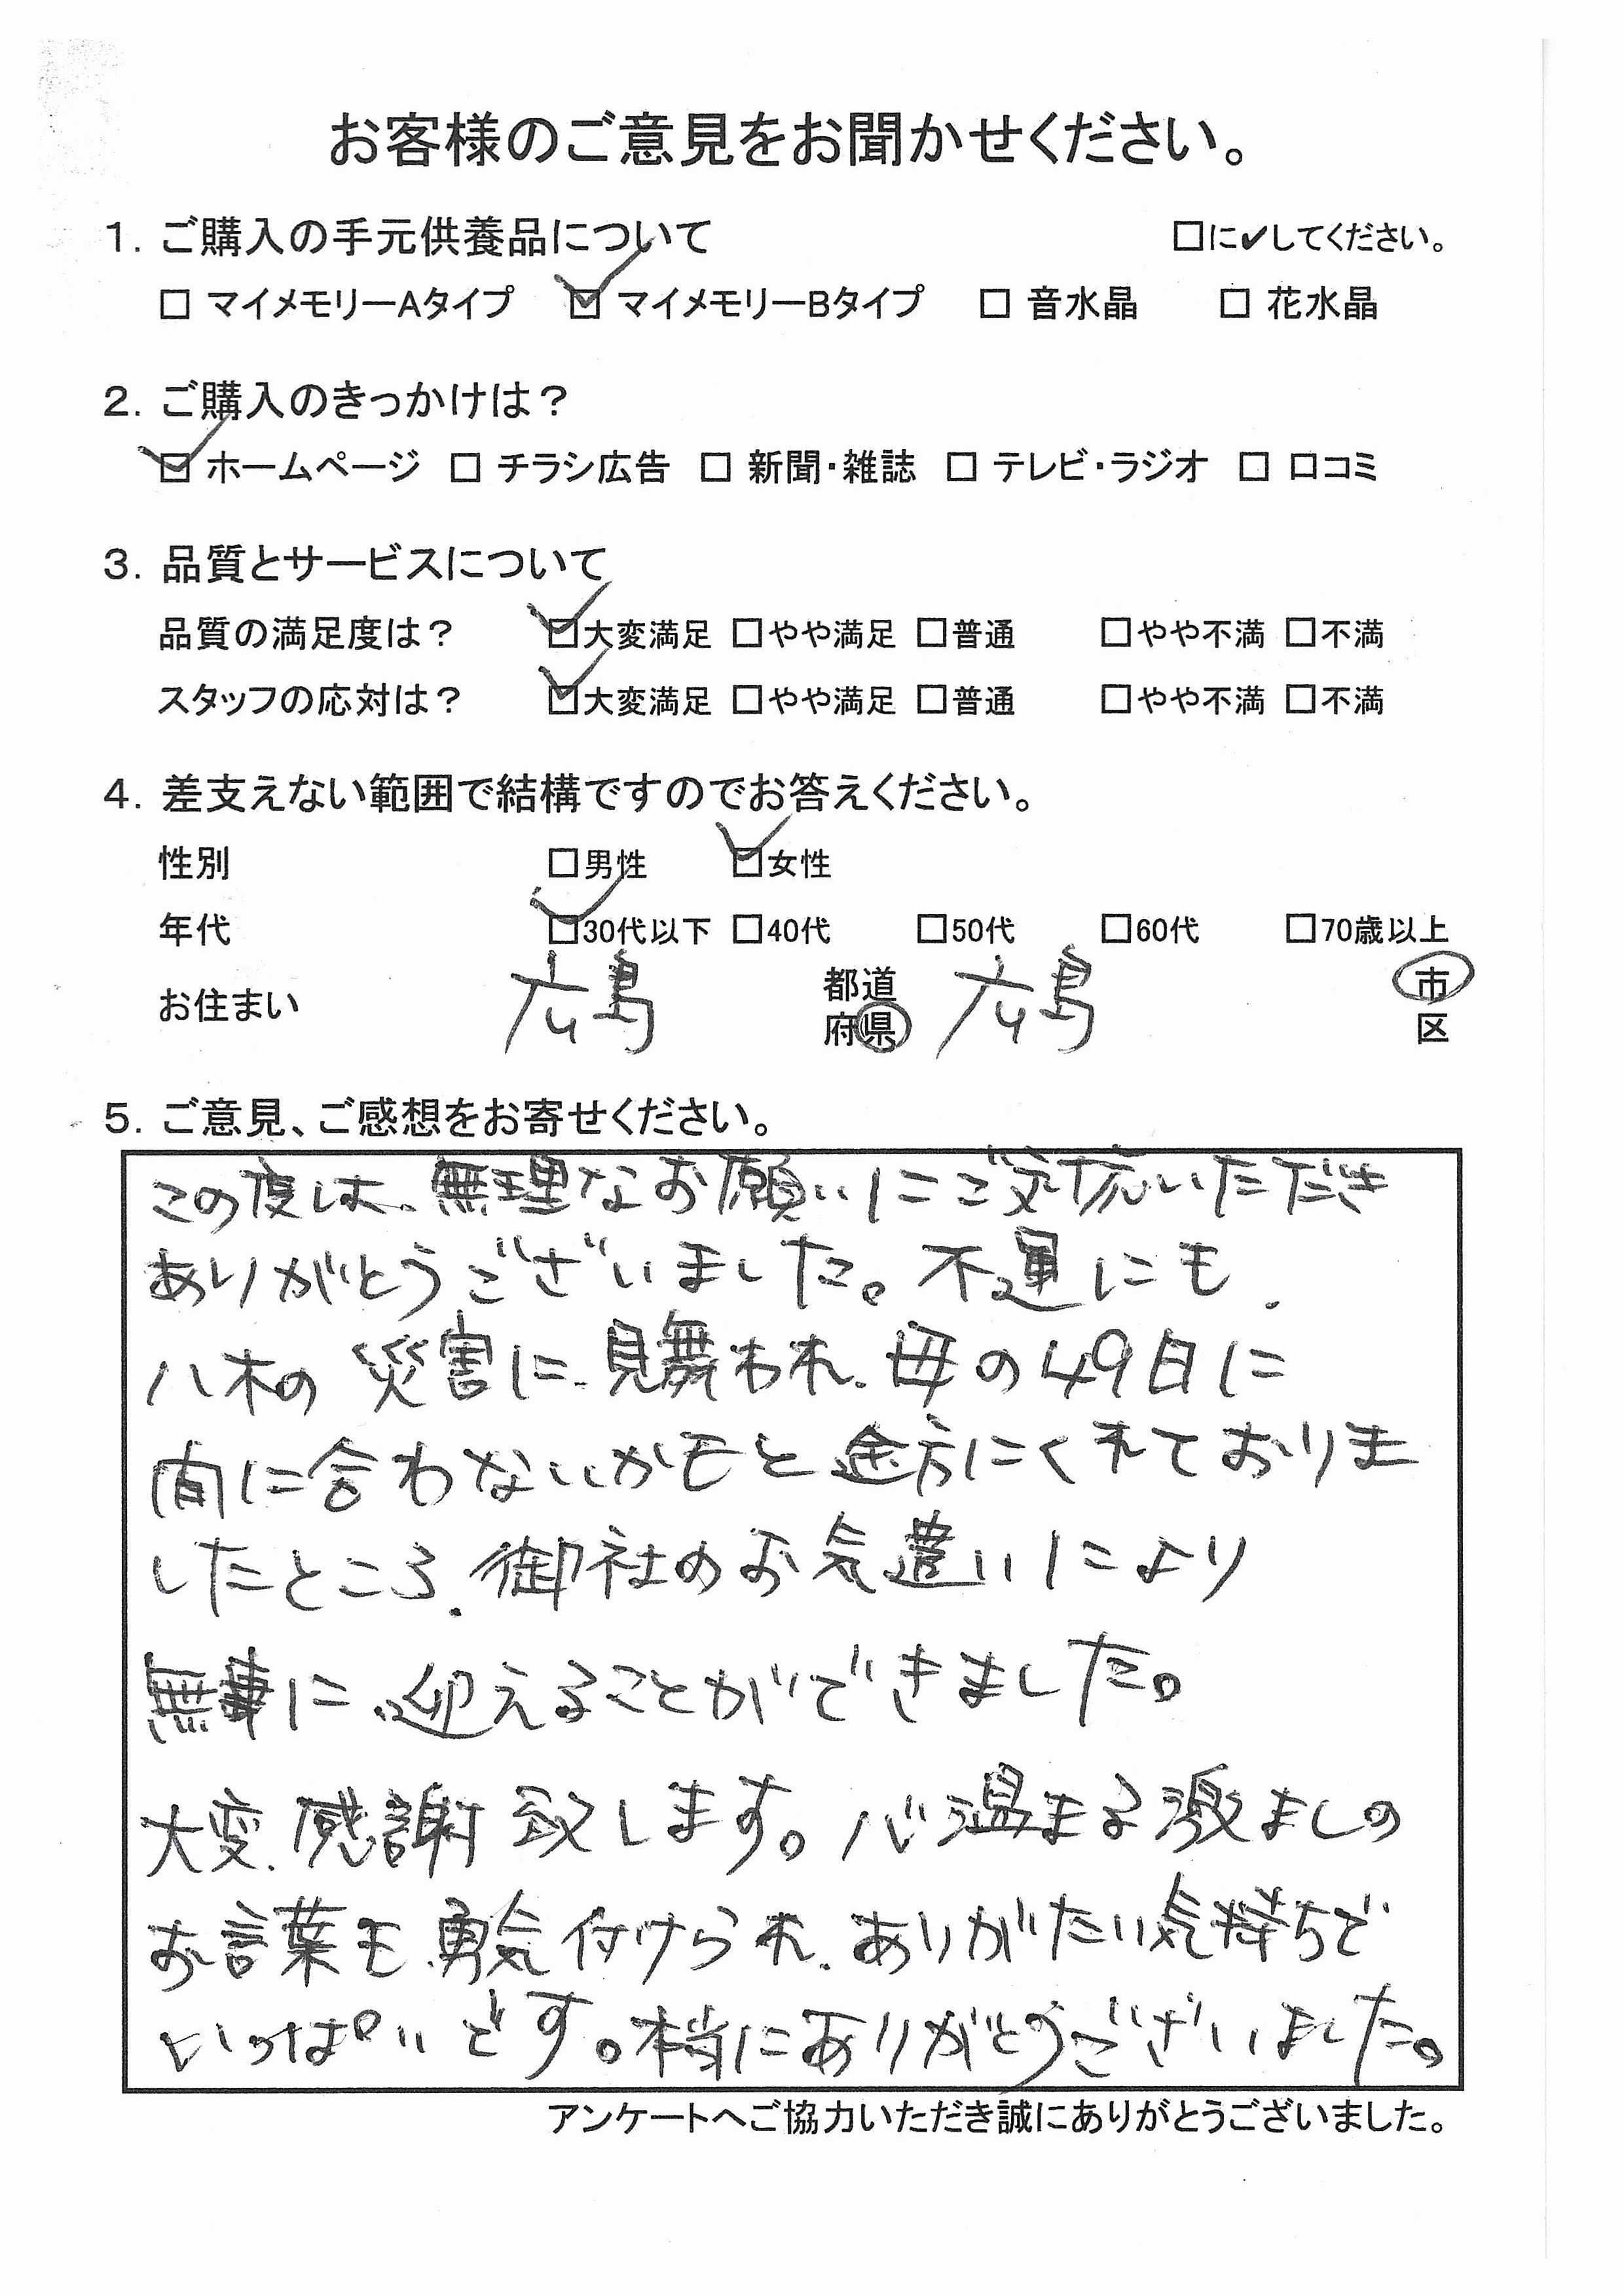 お客様のご意見をお聞かせください。
1. ご購入の手元供養品について □に✔してください。
□ マイメモリーAタイプ ☑ マイメモリーBタイプ □ 音水晶 □ 花水晶
2. ご購入のきっかけは?
☑ ホームページ □ チラシ広告 □ 新聞・雑誌 □ テレビ・ラジオ □ 口コミ
3. 品質とサービスについて
品質の満足度は? ☑大変満足 □やや満足 □普通 □やや不満 □不満
スタッフの応対は? ☑大変満足 □やや満足 □普通 □やや不満 □不満
4. 差支えない範囲で結構ですのでお答えください。
性別 □男性 ☑女性
年代 ☑30代以下 □40代 □50代 □60代 □70歳以上
お住まい 広島 都道府県 広島 市区
5. ご意見、ご感想をお寄せください。
この度は、無理なお願いにご対応いただき
ありがとうございました。不運にも、
八木の災害に、見舞われ、母の49日に
間に合わないかもと途方にくれておりま
したところ、御社のお気遣いにより
無事に、迎えることができました。
大変、感謝致します。心温まる激ましの
お言葉も、勇気付けられ、ありがたい気持ちで
いっぱいです。本当にありがとうございました。
アンケートへご協力いただき誠にありがとうございました。